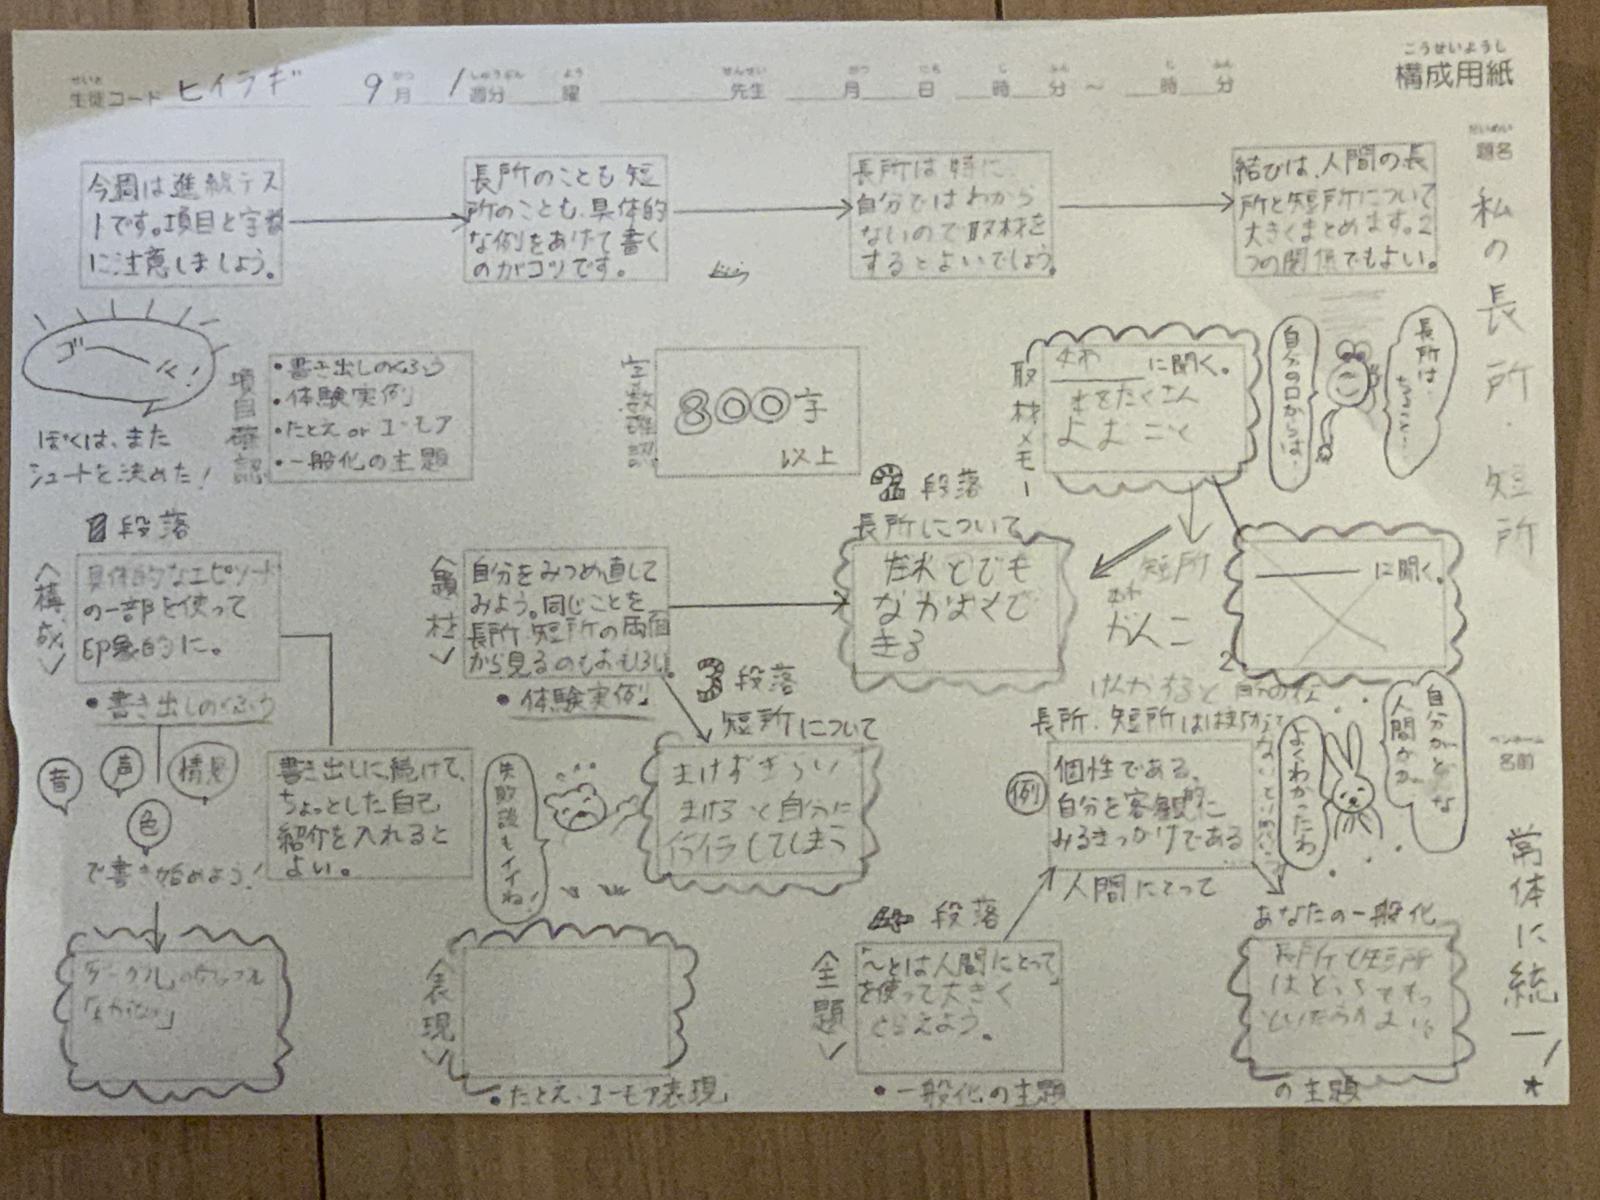 こうせいようし
構成用紙
せいと
生徒コード ヒイラギ 9月 1週分 曜 先生 月 日 時 分 〜 時 分
だいめい
題名
私の長所・短所
ペンネーム
名前
常体に統一!
★
今週は進級テス
トです。項目と字数
に注意しましょう。
長所のことも短
所のことも、具体的
な例をあげて書く
のがコツです。
長所は特に、
自分ではわから
ないので取材を
するとよいでしょう。
結びは、人間の長
所と短所について
大きくまとめます。2
つの関係でもよい。
ぼくは、また
シュートを決めた!
項目確認
・書き出しのくふう
・体験実例
・たとえ or ユーモア
・一般化の主題
字数確認
800字
以上
取材メモー
に聞く。
自分の口からは…
長所は…
1段落
<構成>
具体的なエピソード
の一部を使って
印象的に。
・書き出しのくふう
音
声
情景
色
で書き始めよう!
書き出しに続けて、
ちょっとした自己
紹介を入れると
よい。
<題材>
自分をみつめ直して
みよう。同じことを
長所・短所の両面
から見るのもおもしろい。
・体験実例
2段落
長所について
だれとでも
なかよくで
きる
短所
がんこ
に聞く。
3段落
短所について
まけずぎらい
まけると自分に
イライラしてしまう
失敗談もイイね!
長所・短所は
例
個性である、
自分を客観的に
みるきっかけである
人間にとって
よくわかったわ
自分がどんな
人間かが
<表現>
・たとえ・ユーモア表現
4段落
<主題>
「〜とは人間にとって」
を使って大きく
とらえよう。
・一般化の主題
あなたの一般化
の主題